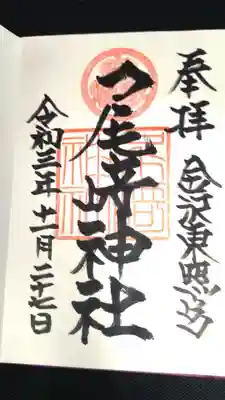 奉拝 金沢東照宮
尾﨑神社
令和三年十一月二十七日